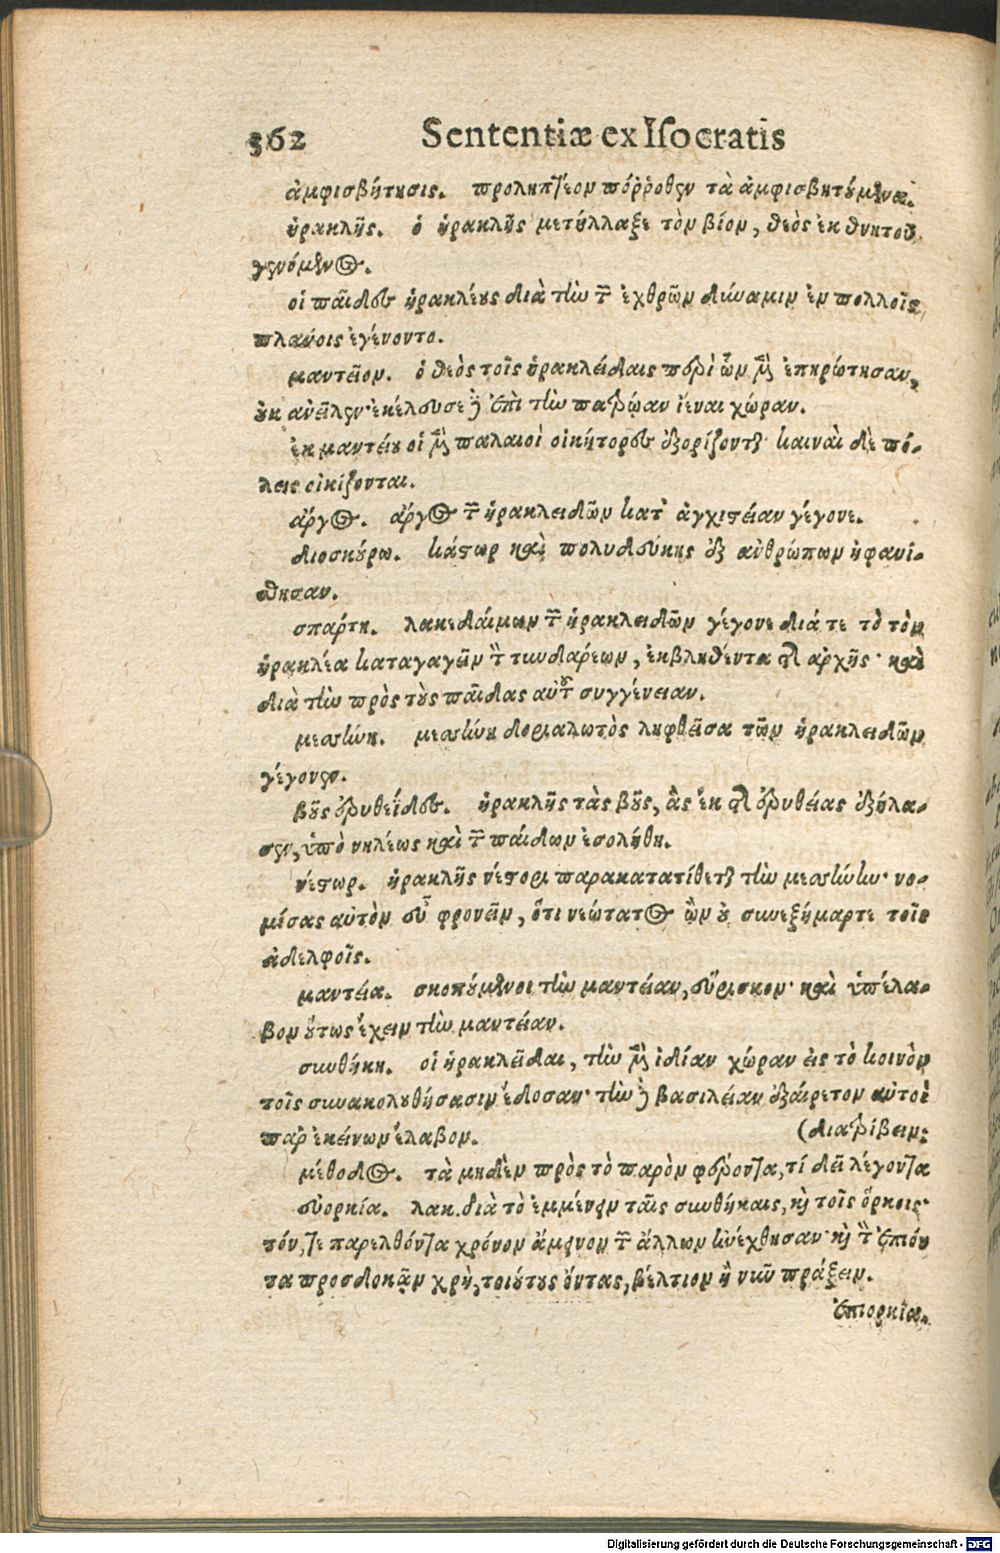 362 Sententiæ ex Isocratis
ἀμφισβήτησις. προληπτέον πόῤῥοθεν τὰ ἀμφισβητούμενα.
ἡρακλῆς. ὁ ἡρακλῆς μετήλλαξε τὸν βίον, θεὸς ἐκ θνητοῦ
γενόμενος.
οἱ παῖδες ἡρακλέους διὰ τὴν τῶν ἐχθρῶν δύναμιν ἐν πολλοῖς
πλάνοις ἐγένοντο.
μαντεῖον. ὁ θεὸς τοῖς ἡρακλείδαις περὶ ὧν μὲν ἐπηρώτησαν,
οὐκ ἀνεῖλεν· ἐκέλευσε δὲ ἐπὶ τὴν πατρῴαν ἰέναι χώραν.
ἐκ μαντείου οἱ μὲν παλαιοὶ οἰκήτορες ἐξορίζονται· καιναὶ δὲ πό-
λεις οἰκίζονται.
ἄργος. ἄργος τῶν ἡρακλειδῶν κατ' ἀγχιστείαν γέγονε.
διοσκούρω. κάστωρ καὶ πολυδεύκης ἐξ ἀνθρώπων ἠφανί-
σθησαν.
σπάρτη. λακεδαίμων τῶν ἡρακλειδῶν γέγονε διά τε τὸ τὸν
ἡρακλέα καταγαγεῖν τὸν τυνδάρεων, ἐκβληθέντα τῆς ἀρχῆς· καὶ
διὰ τὴν πρὸς τοὺς παῖδας αὐτοῦ συγγένειαν.
μεσσήνη. μεσσήνη δοριάλωτος ληφθεῖσα τῶν ἡρακλειδῶν
γέγονεν.
βοῦς ἐρυθεΐδες. ἡρακλῆς τὰς βοῦς, ἃς ἐκ τῆς ἐρυθείας ἐξήλα-
σεν, ὑπὸ νηλέως καὶ τῶν παίδων ἐσυλήθη.
νέστωρ. ἡρακλῆς νέστορι παρακατατίθεται τὴν μεσσήνην· νο-
μίσας αὐτὸν εὖ φρονεῖν, ὅτι νεώτατος ὢν οὐ συνεξήμαρτε τοῖς
ἀδελφοῖς.
μαντεία. σκοπούμενοι τὴν μαντείαν, εὕρισκον· καὶ ὑπέλα-
βον οὕτως ἔχειν τὴν μαντείαν.
συνθήκη. οἱ ἡρακλεῖδαι, τὴν μὲν ἰδίαν χώραν εἰς τὸ κοινὸν
τοῖς συνακολουθήσασιν ἔδοσαν· τὴν δὲ βασιλείαν ἐξαίρετον αὐτοὶ
παρ' ἐκείνων ἔλαβον. (διατρίβειν;
μέθοδος. τὰ μηδὲν πρὸς τὸ παρὸν φέροντα, τί δεῖ λέγοντα
εὐορκία. λακ. διὰ τὸ ἐμμένειν ταῖς συνθήκαις, καὶ τοῖς ὅρκοις·
τόν, τε παρελθόντα χρόνον ἄμεινον τῶν ἄλλων ἠνέχθησαν· καὶ τὸν ἐπιόν
τα προσδοκᾷν χρὴ, τοιούτους ὄντας, βέλτιον ἢ νῦν πράξειν.
ἐπιορκία.
Digitalisierung gefördert durch die Deutsche Forschungsgemeinschaft - DFG